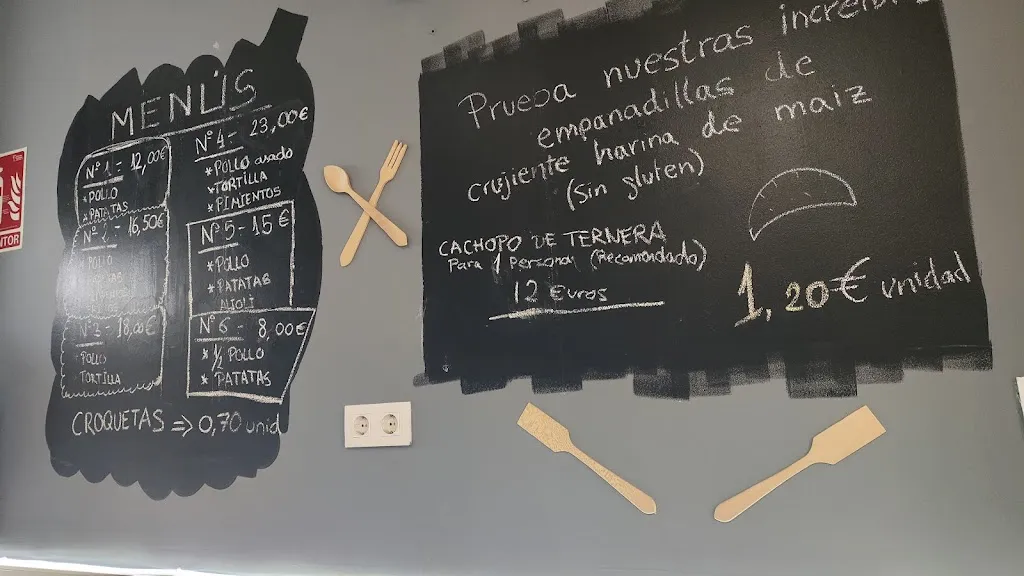 MENÚS
Nº 1 - 12,00€
* POLLO
* PATATAS
Nº 2 - 16,50€
POLLO
Nº 3 - 18,00€
POLLO
TORTILLA
Nº 4 - 23,00€
* POLLO asado
* TORTILLA
* PIMIENTOS
Nº 5 - 15€
* POLLO
* PATATAS
ALIOLI
Nº 6 - 8,00€
* ½ POLLO
* PATATAS
CROQUETAS => 0,70 unid
Prueba nuestras
empanadillas de
crujiente harina de maiz
(sin gluten)
CACHOPO DE TERNERA
Para 1 Persona (Recomendado)
12 Euros
1,20€ unidad